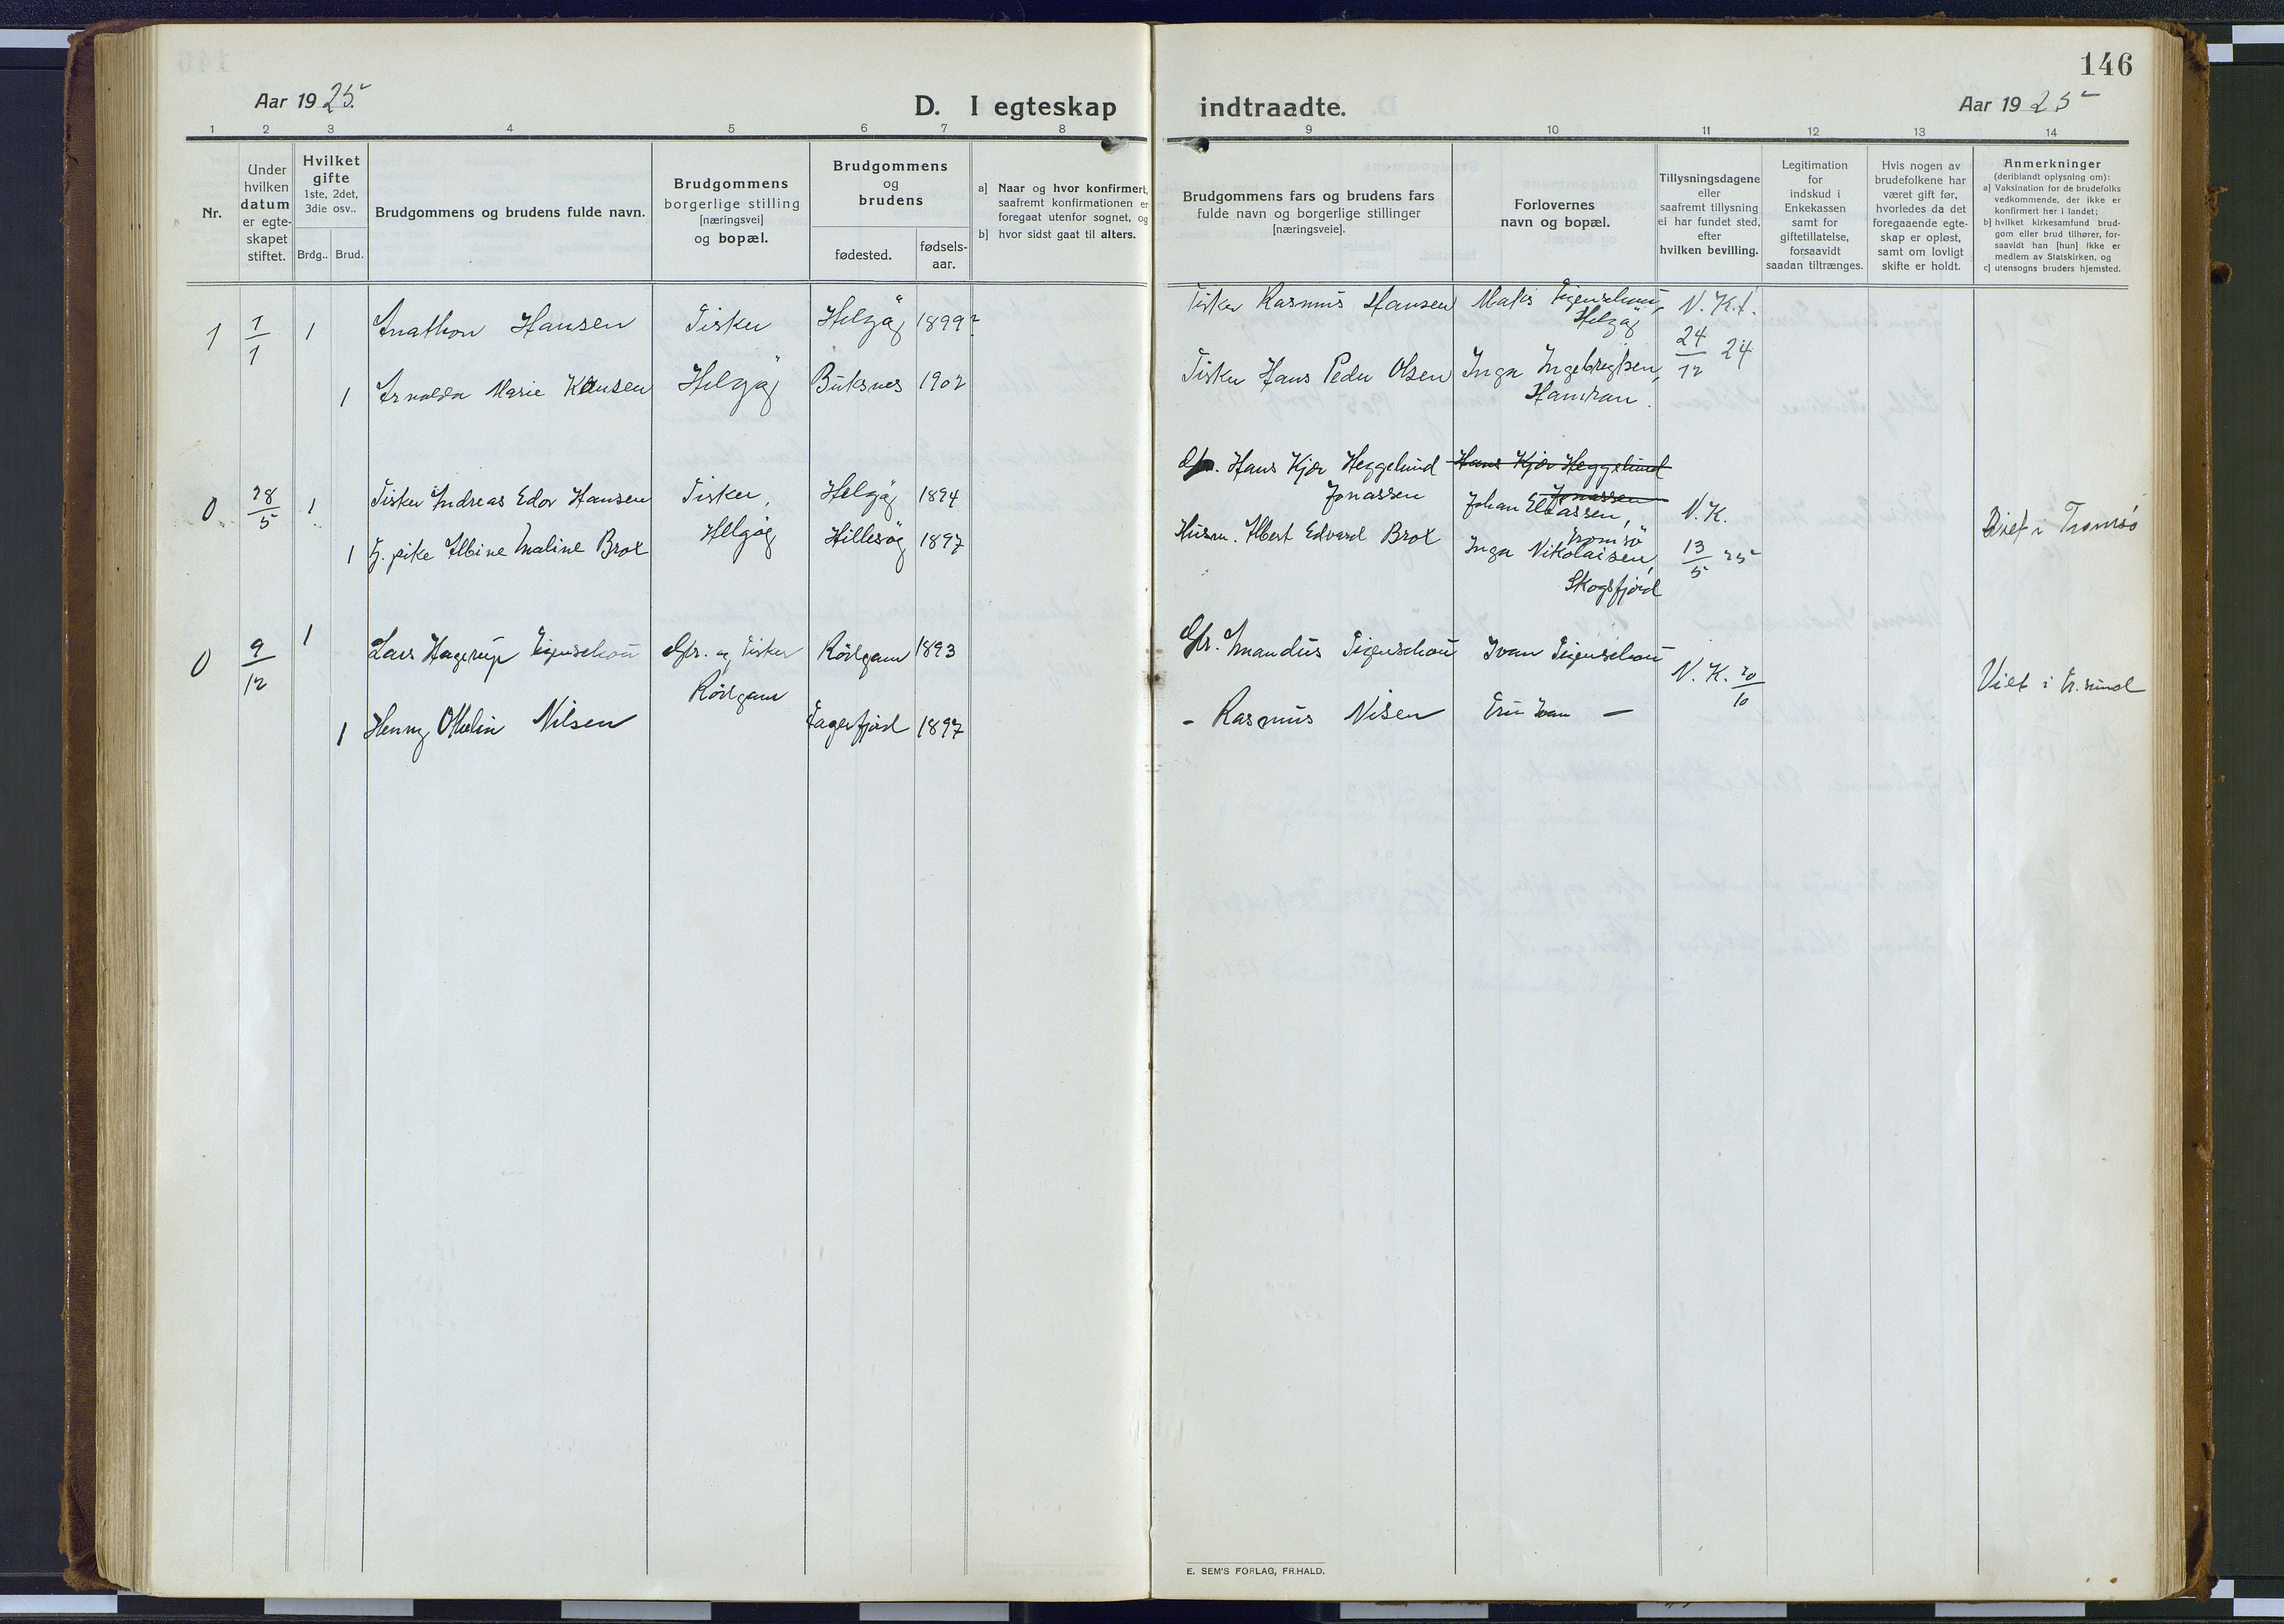 146
Aar 1925
D. I egteskap indtraadte.
Aar 1925
1 2 3 4 5 6 7 8 9 10 11 12 13 14
Nr.
Under
hvilken
datum
er egte-
skapet
stiftet.
Hvilket
gifte
1ste, 2det,
3die osv..
Brdg.. Brud.
Brudgommens og brudens fulde navn.
Brudgommens
borgerlige stilling
[næringsvei]
og bopæl.
Brudgommens
og
brudens
fødested.
fødsels-
aar.
a] Naar og hvor konfirmert,
saafremt konfirmationen er
foregaat utenfor sognet, og
b] hvor sidst gaat til alters.
Brudgommens fars og brudens fars
fulde navn og borgerlige stillinger
[næringsveie].
Forlovernes
navn og bopæl.
Tillysningsdagene
eller
saafremt tillysning
ei har fundet sted,
efter
hvilken bevilling.
Legitimation
for
indskud i
Enkekassen
samt for
giftetillatelse,
forsaavidt
saadan tiltrænges.
Hvis nogen av
brudefolkene har
været gift før,
hvorledes da det
foregaaende egte-
skap er opløst,
samt om lovligt
skifte er holdt.
Anmerkninger
(deriblandt oplysning om):
a] Vaksination for de brudefolks
vedkommende, der ikke er
konfirmert her i landet;
b] hvilket kirkesamfund brud-
gom eller brud tilhører, for-
saavidt han [hun] ikke er
medlem av Statskirken, og
c] utensogns bruders hjemsted.
1 1/1 1 Anathon Hansen Fisker Helgøy 1899 Fisker Rasmus Hansen Maks Figenschou, N. K.
Helgøy
24/12 24
1 Arnolda Marie Hansen Helgøy Buksnes 1902 Fisker Hans Peder Olsen Inga Ingebregtsen,
Hamran.
Hans Kjær Heggelund Hans Kjær Heggelund
Jonassen Jonassen
0 28/5 1 Fisker Andreas Edor Hansen Fisker, Helgøy 1894 Johan Eliassen, N. K.
Tromsø
1 pike Albine Maline Brox Helgøy Hillesøy 1897 Husm. Albert Edvard Brox Inga Nikolaisen, 13/5 25 Viet i Tromsø
Skogsfjord
0 9/12 1 Lars Hagerup Figenschou Gbr. og Fisker 1893 Gbr. Amandus Figenschou Ivan Figenschou N. K. 20/10 Viet i
1 Henny Othelin Nilsen Fagerfjord 1897 - Rasmus Nilsen Fru Ivan —
E. SEM'S FORLAG, FR.HALD.